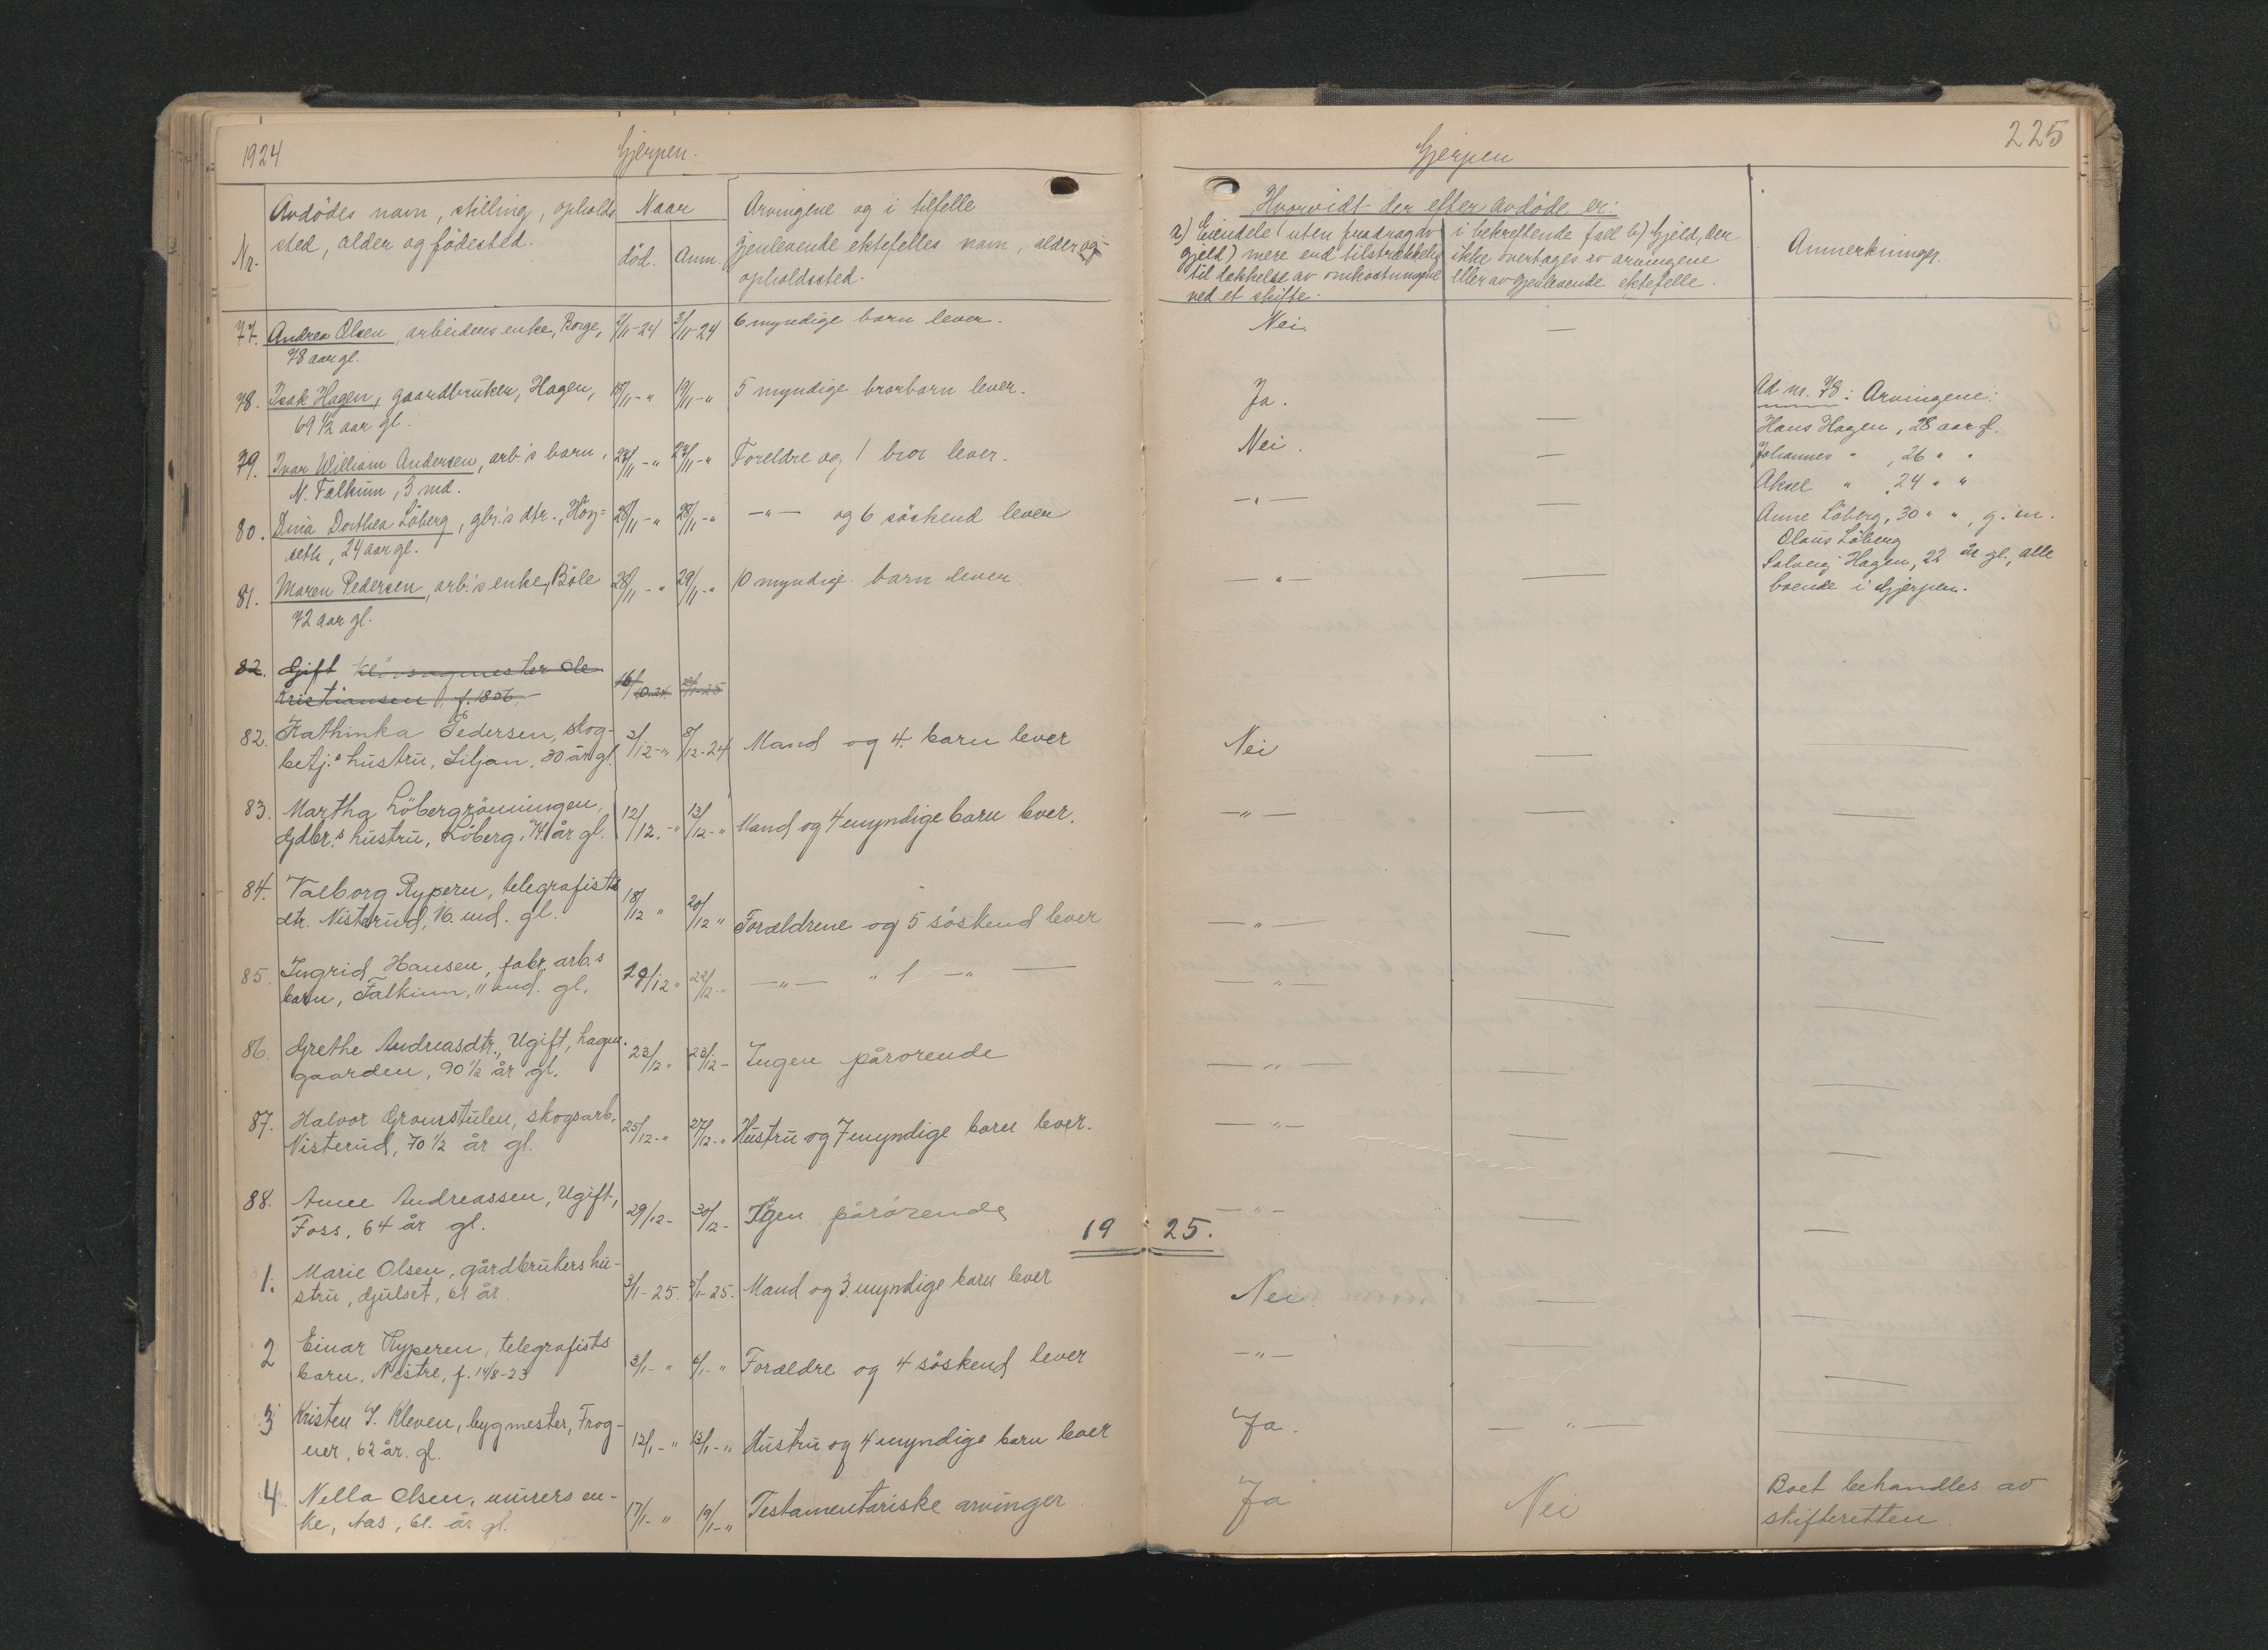 1924 Gjerpen.
Nr. Avdödes navn, stilling, opholds
sted, alder og födested.
Naar
död. Anm.
Arvingene og i tilfelle
gjenlevende ektefelles navn, alder og
opholdssted.
77. Andrea Olsen, arbeiders enke, Borge, 2/11-24 3/11-24 6 myndige barn lever.
78 aar gl.
78. Isak Hagen, gaardbruker, Hagen, 18/11-" 19/11-" 5 myndige brorbarn lever.
69 1/2 aar gl.
79. Ivar William Andersen, arb.'s barn, 24/11-" 27/11-" Foreldre og 1 bror lever.
N. Falkum, 3 md.
80. Dina Dorthea Löberg, gbr.'s dtr., Hög= 28/11-" 28/11-" —"— og 6 söskend lever
seth, 24 aar gl.
81. Maren Pedersen, arb.'s enke, Böle 28/11-" 29/11-" 10 myndige barn lever.
72 aar gl.
82. Gift Klövsagmester Ole 16/10-24. -25
Kristiansen f. 1856.
82. Kathinka Pedersen, skog- 2/12-" 8/12-24 Mand og 4. barn lever
betj.s hustru, Liljan, 30 år gl.
83. Martha Löbergrönningen, 12/12.-" 13/12-" Mand og 4 myndige barn lever.
Gdbr.s hustru, Löberg, 74 år gl.
84. Valborg Ryperu, telegrafists 18/12 " 20/12 " Forældrene og 5 söskend lever
dtr. Nisterud, 16. md. gl.
85. Ingrid Hansen, fabr. arb.s 19/12 " 22/12-" —"— " 1 —"—
barn, Falkum, 11 md. gl.
86. Grethe Andreasdtr., Ugift, hagen. 23/12 " 23/12- Ingen pårörende
gaarden, 90 1/2 år gl.
87. Halvor Gromstulen, skogsarb. 25/12-" 27/12-" Hustru og 7 myndige barn lever.
Nisterud, 70 1/2 år gl.
88. Anne Andreassen, Ugift, 29/12- 30/12- Igen pårörende
Foss, 64 år gl.
19
1. Marie Olsen, gårdbrukers hu- 3/1-25. 5/1-25. Mand og 3 myndige barn lever
stru, Gjulset, 61 år.
2 Einar Ryperen, telegrafists 3/1-" 6/1-" Forældre og 4 söskend lever
barn, Nistre, f. 14/8-23
3 Kristen J. Kleven, bygmester, Frog- 12/1-" 13/1-" Hustru og 4 myndige barn lever
ner, 62 år. gl.
4. Nella Olsen, murers en- 17/1-" 19/1-" Testamentariske arvinger
ke, Aas, 61. år gl.
Gjerpen 225
Hvorvidt der efter avdöde er:
a) Eiendele (uten fradrag av
gjeld) mere end tilstrækkelig
til dækkelse av omkostningene
ved et skifte.
i bekreftende fall b) Gjeld, der
ikke overtages av arvingene
eller av gjenlevende ektefelle.
Anmerkninger.
Nei. —
Ja. —
Nei. —
—"— —
—"— —
Ad nr. 78: Arvingene:
Hans Hagen, 28 aar gl.
Johannes " , 26 " "
Aksel " , 24 " "
Anne Löberg, 30 " " , g. m.
Olaus Löberg
Solveig Hagen, 22 år gl., alle
boende i Gjerpen.
Nei — —
—"— — —
—"— — —
—"— — —
—"— — —
—"— — —
—"— — —
25.
Nei. — —
—"— — —
Ja. —"— —
Ja Nei Boet behandles av
skifteretten.